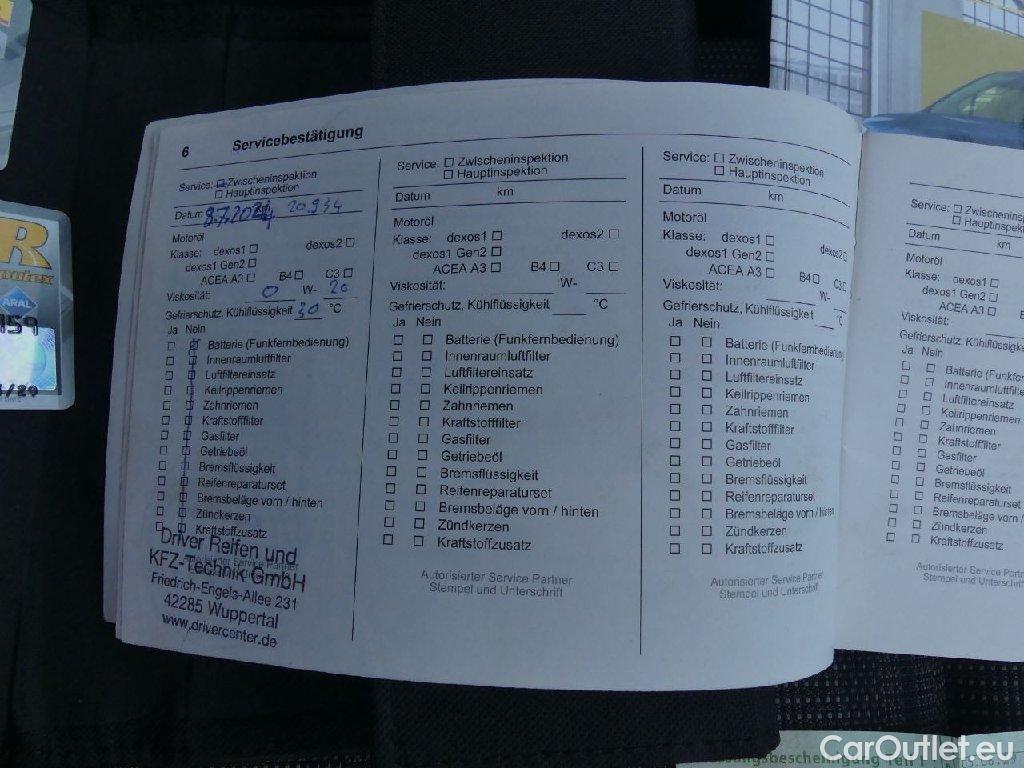 6 Servicebestätigung
Service: ☐ Zwischeninspektion
☐ Hauptinspektion
Datum
Motoröl
Klasse: dexos1 ☐ dexos2 ☐
dexos1 Gen2 ☐
ACEA A3 ☐ B4 ☐ C3 ☐
Viskosität: 0 W- 20
Gefrierschutz, Kühlflüssigkeit 30 °C
Ja Nein
☐ ☐ Batterie (Funkfernbedienung)
☐ ☐ Innenraumluftfilter
☐ ☐ Luftfiltereinsatz
☐ ☐ Keilrippenriemen
☐ ☐ Zahnriemen
☐ ☐ Kraftstofffilter
☐ ☐ Gasfilter
☐ ☐ Getriebeöl
☐ ☐ Bremsflüssigkeit
☐ ☐ Reifenreparaturset
☐ ☐ Bremsbeläge vorn / hinten
☐ ☐ Zündkerzen
☐ ☐ Kraftstoffzusatz
Driver Reifen und
KFZ-Technik GmbH
Friedrich-Engels-Allee 231
42285 Wuppertal
www.drivercenter.de
Service: ☐ Zwischeninspektion
☐ Hauptinspektion
Datum km
Motoröl
Klasse: dexos1 ☐ dexos2 ☐
dexos1 Gen2 ☐
ACEA A3 ☐ B4 ☐ C3 ☐
Viskosität: W-
Gefrierschutz, Kühlflüssigkeit °C
Ja Nein
☐ ☐ Batterie (Funkfernbedienung)
☐ ☐ Innenraumluftfilter
☐ ☐ Luftfiltereinsatz
☐ ☐ Keilrippenriemen
☐ ☐ Zahnriemen
☐ ☐ Kraftstofffilter
☐ ☐ Gasfilter
☐ ☐ Getriebeöl
☐ ☐ Bremsflüssigkeit
☐ ☐ Reifenreparaturset
☐ ☐ Bremsbeläge vorn / hinten
☐ ☐ Zündkerzen
☐ ☐ Kraftstoffzusatz
Autorisierter Service Partner
Stempel und Unterschrift
Service: ☐ Zwischeninspektion
☐ Hauptinspektion
Datum km
Motoröl
Klasse: dexos1 ☐ dexos2 ☐
dexos1 Gen2 ☐
ACEA A3 ☐ B4 ☐ C3 ☐
Viskosität: W-
Gefrierschutz, Kühlflüssigkeit °C
Ja Nein
☐ ☐ Batterie (Funkfernbedienung)
☐ ☐ Innenraumluftfilter
☐ ☐ Luftfiltereinsatz
☐ ☐ Keilrippenriemen
☐ ☐ Zahnriemen
☐ ☐ Kraftstofffilter
☐ ☐ Gasfilter
☐ ☐ Getriebeöl
☐ ☐ Bremsflüssigkeit
☐ ☐ Reifenreparaturset
☐ ☐ Bremsbeläge vorn / hinten
☐ ☐ Zündkerzen
☐ ☐ Kraftstoffzusatz
Autorisierter Service Partner
Stempel und Unterschrift
Service: ☐ Zwischeninsp
☐ Hauptinspekt
Datum km
Motoröl
Klasse: dexos1 ☐
dexos1 Gen2 ☐
ACEA A3 ☐
Viskosität:
Gefrierschutz, Kühlflüssigke
Ja Nein
☐ ☐ Batterie (Funkfern
☐ ☐ Innenraumluftfilte
☐ ☐ Luftfiltereinsatz
☐ ☐ Keilrippenriemen
☐ ☐ Zahnriemen
☐ ☐ Kraftstofffilter
☐ ☐ Gasfilter
☐ ☐ Getriebeöl
☐ ☐ Bremsflüssigkeit
☐ ☐ Reifenreparaturset
☐ ☐ Bremsbeläge vorn /
☐ ☐ Zündkerzen
☐ ☐ Kraftstoffzusatz
Autorisierter Service Pa
Stempel und Unterschr
R
ARAL
159
CarOutlet.eu